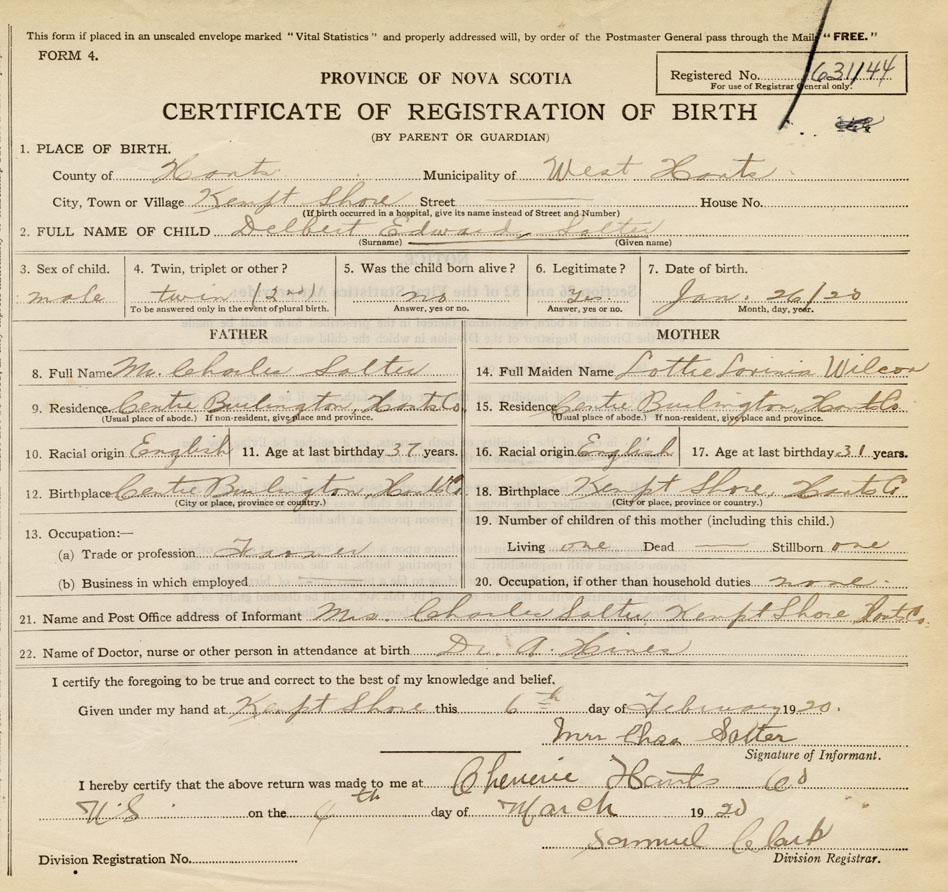 This form if placed in an unsealed envelope marked "Vital Statistics" and properly addressed will, by order of the Postmaster General pass through the Mail "FREE."
FORM 4.
PROVINCE OF NOVA SCOTIA
Registered No. 631/44
For use of Registrar General only.
CERTIFICATE OF REGISTRATION OF BIRTH
(BY PARENT OR GUARDIAN)
1. PLACE OF BIRTH.
County of Hants Municipality of West Hants
City, Town or Village Kempt Shore Street House No.
(If birth occurred in a hospital, give its name instead of Street and Number)
2. FULL NAME OF CHILD Delbert Edward Salter
(Surname) (Given name)
3. Sex of child. 4. Twin, triplet or other? 5. Was the child born alive? 6. Legitimate? 7. Date of birth.
male twin (2nd) no Yes. Jan. 26/20
To be answered only in the event of plural birth. Answer, yes or no. Answer, yes or no. Month, day, year.
FATHER MOTHER
8. Full Name Mr. Charles Salter 14. Full Maiden Name Lottie Lovinia Wilcox
9. Residence Centre Burlington, Hants Co. 15. Residence Centre Burlington, Hants Co
(Usual place of abode.) If non-resident, give place and province. (Usual place of abode.) If non-resident, give place and province.
10. Racial origin English 11. Age at last birthday 37 years. 16. Racial origin English 17. Age at last birthday 31 years.
12. Birthplace Centre Burlington, Hants Co. 18. Birthplace Kempt Shore, Hants Co
(City or place, province or country.) (City or place, province or country.)
13. Occupation:— 19. Number of children of this mother (including this child.)
(a) Trade or profession Farmer Living one Dead — Stillborn one
(b) Business in which employed 20. Occupation, if other than household duties none.
21. Name and Post Office address of Informant Mrs. Charles Salter Kempt Shore, Hants Co.
22. Name of Doctor, nurse or other person in attendance at birth Dr. A. Hines
I certify the foregoing to be true and correct to the best of my knowledge and belief.
Given under my hand at Kempt Shore this 6th day of February 1920.
Mrs Chas Salter
Signature of Informant.
I hereby certify that the above return was made to me at Cheverie Hants Co
N.S. on the 4th day of March 1920
Samuel Clark
Division Registration No. Division Registrar.